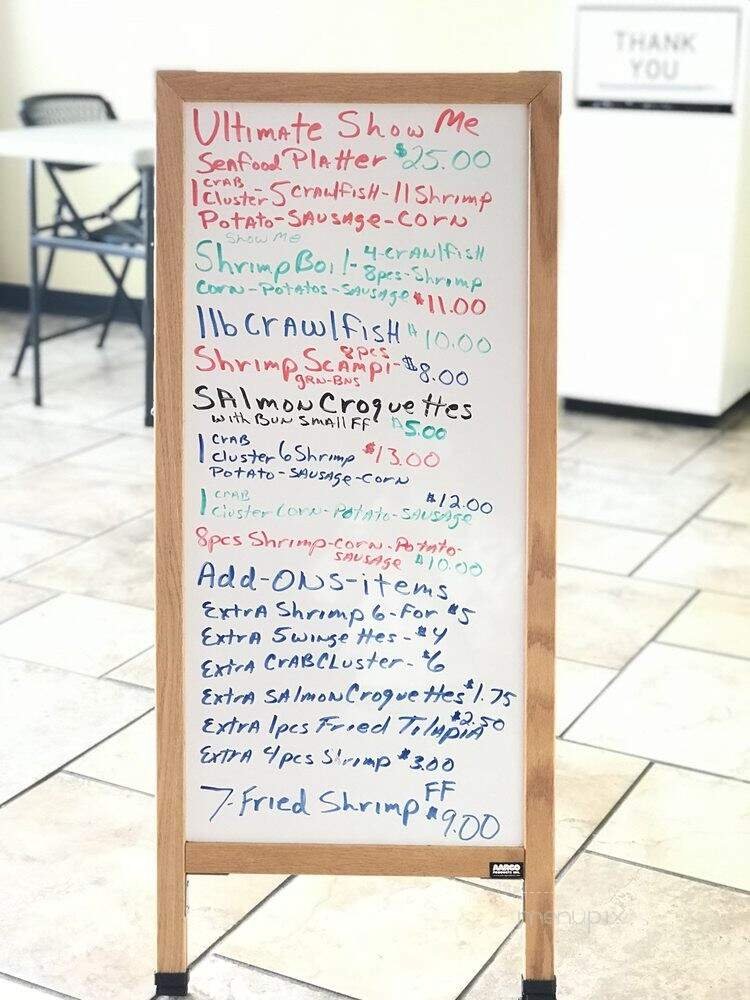 THANK
YOU
Ultimate Show Me
Seafood Platter $25.00
1 crAB Cluster - 5 crawlfish - 11 Shrimp
Potato-Sausage-Corn
Show Me
Shrimp Boil - 4-crawlfish
8pcs-Shrimp
Corn-Potatos-Sausage $11.00
1lb Crawlfish $10.00
Shrimp Scampi - 8pcs $8.00
grn-Bns
Salmon Croquettes
with Bun Small FF $5.00
1 crAB cluster 6 Shrimp $13.00
Potato-Sausage-Corn
$12.00
1 crab Cluster Corn-Potato-Sausage
8pcs Shrimp-corn-Potato-
Sausage $10.00
Add-ONS-items
Extra Shrimp 6-For $5
Extra 5 wingettes - $4
Extra CrabCluster - $6
Extra Salmon Croquettes $1.75
Extra 1pcs Fried Tilapia $2.50
Extra 4pcs Shrimp $3.00
7-Fried Shrimp FF $9.00
AARCO
PRODUCTS INC.
menupix